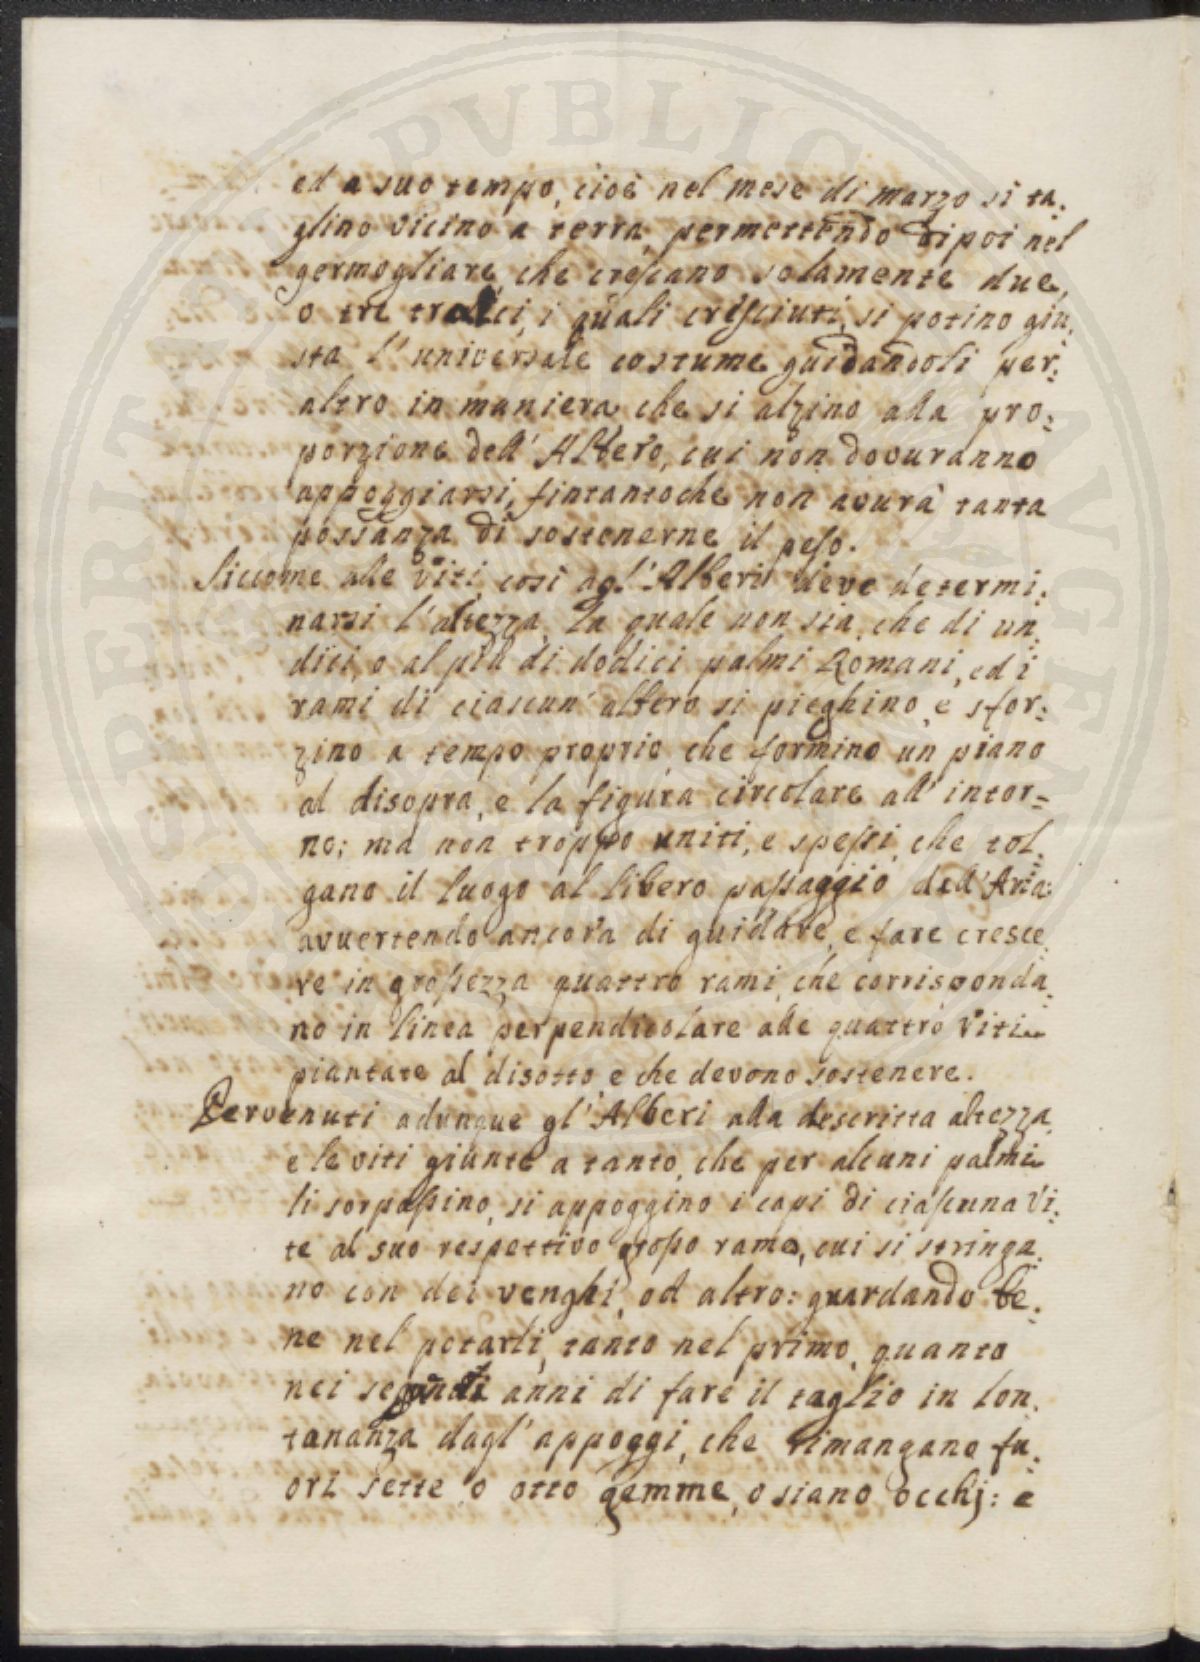 ed a suo tempo, cioè nel mese di marzo si ta-
glino vicino a terra, permettendo dipoi nel
germogliare, che crescano solamente due,
o tre tralci, i quali cresciuti, si potino giu-
sta l'universale costume guidandoli per-
altro in maniera che si alzino alla pro-
porzione dell'Albero, cui non dovuranno
appoggiarsi, fintantoche non avurà tanta
possanza di sostenerne il peso.
Siccome alle viti, così agl'Alberi deve determi-
narsi l'altezza, la quale non sia, che di un-
dici, o al più di dodici palmi Romani, ed i
rami di ciascun'albero si pieghino, e sfor-
zino a tempo proprio che formino un piano
al disopra, e la figura circolare all'intor-
no; ma non troppo uniti, e spessi, che tol-
gano il luogo al libero passaggio dell'Aria:
avuertendo ancora di guidare, e fare cresce-
re in grossezza quattro rami, che corrisponda-
no in linea perpendicolare alle quattro Viti
piantate al disotto, e che devono sostenere.
Pervenuti adunque gl'Alberi alla descritta altezza,
e le viti giunte a tanto, che per alcuni palmi
li sorpassino, si appoggino i capi di ciascuna Vi-
te al suo respettivo grosso ramo, cui si stringa-
no con dei venghi, od altro: guardando be-
ne nel potarli, tanto nel primo, quanto
nei secondi anni di fare il taglio in lon-
tananza dagl'appoggi, che rimangano fu-
ori sette, o otto gemme, o siano occhj: e
SPERITAS PVBLICA AVGE